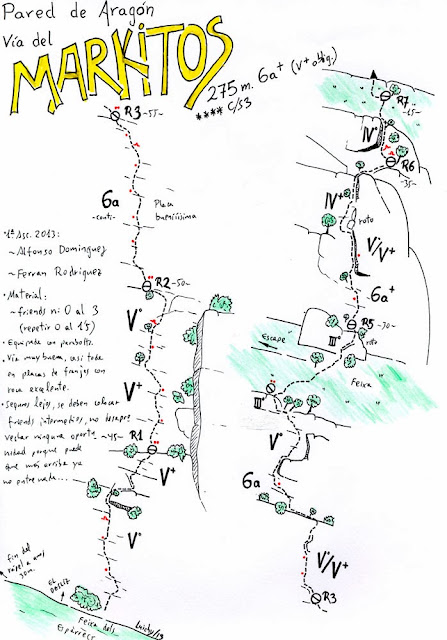 Pared de Aragón
Vía del
MARKITOS
275 m. 6a+ (V+ oblig.)
**** C/S3
R3 ~55~
6a
~cont~
Placa
buenísima
•1ª Asc. 2013:
~Alfonso Dominguez
~Ferran Rodriguez
•Material:
~friends nº 0 al 3
(repetir 0 al 1'5)
•Equipada con parabolts.
•Vía muy buena, casi toda
en placas te franjes con
roca excelente.
•Seguros lejos, se deben colocar
friends intermedios, no desapro
vechar ninguna oportu
nidad porque puede
que más arriba ya
no entre nada...
R2 ~50~
Vº
V+
~45~ R1
V+
Vº
fin del
rápel a unos
30m.
EL DOBLE
Feixa dels
Luichy/13
R7
~15~
IVº
R6
~35~
IV+
roto
V/V+
6a+
R5 ~30~
IIIº
roto
Escape
Feixa
IIIº
Vº
6a
V/V+
R3